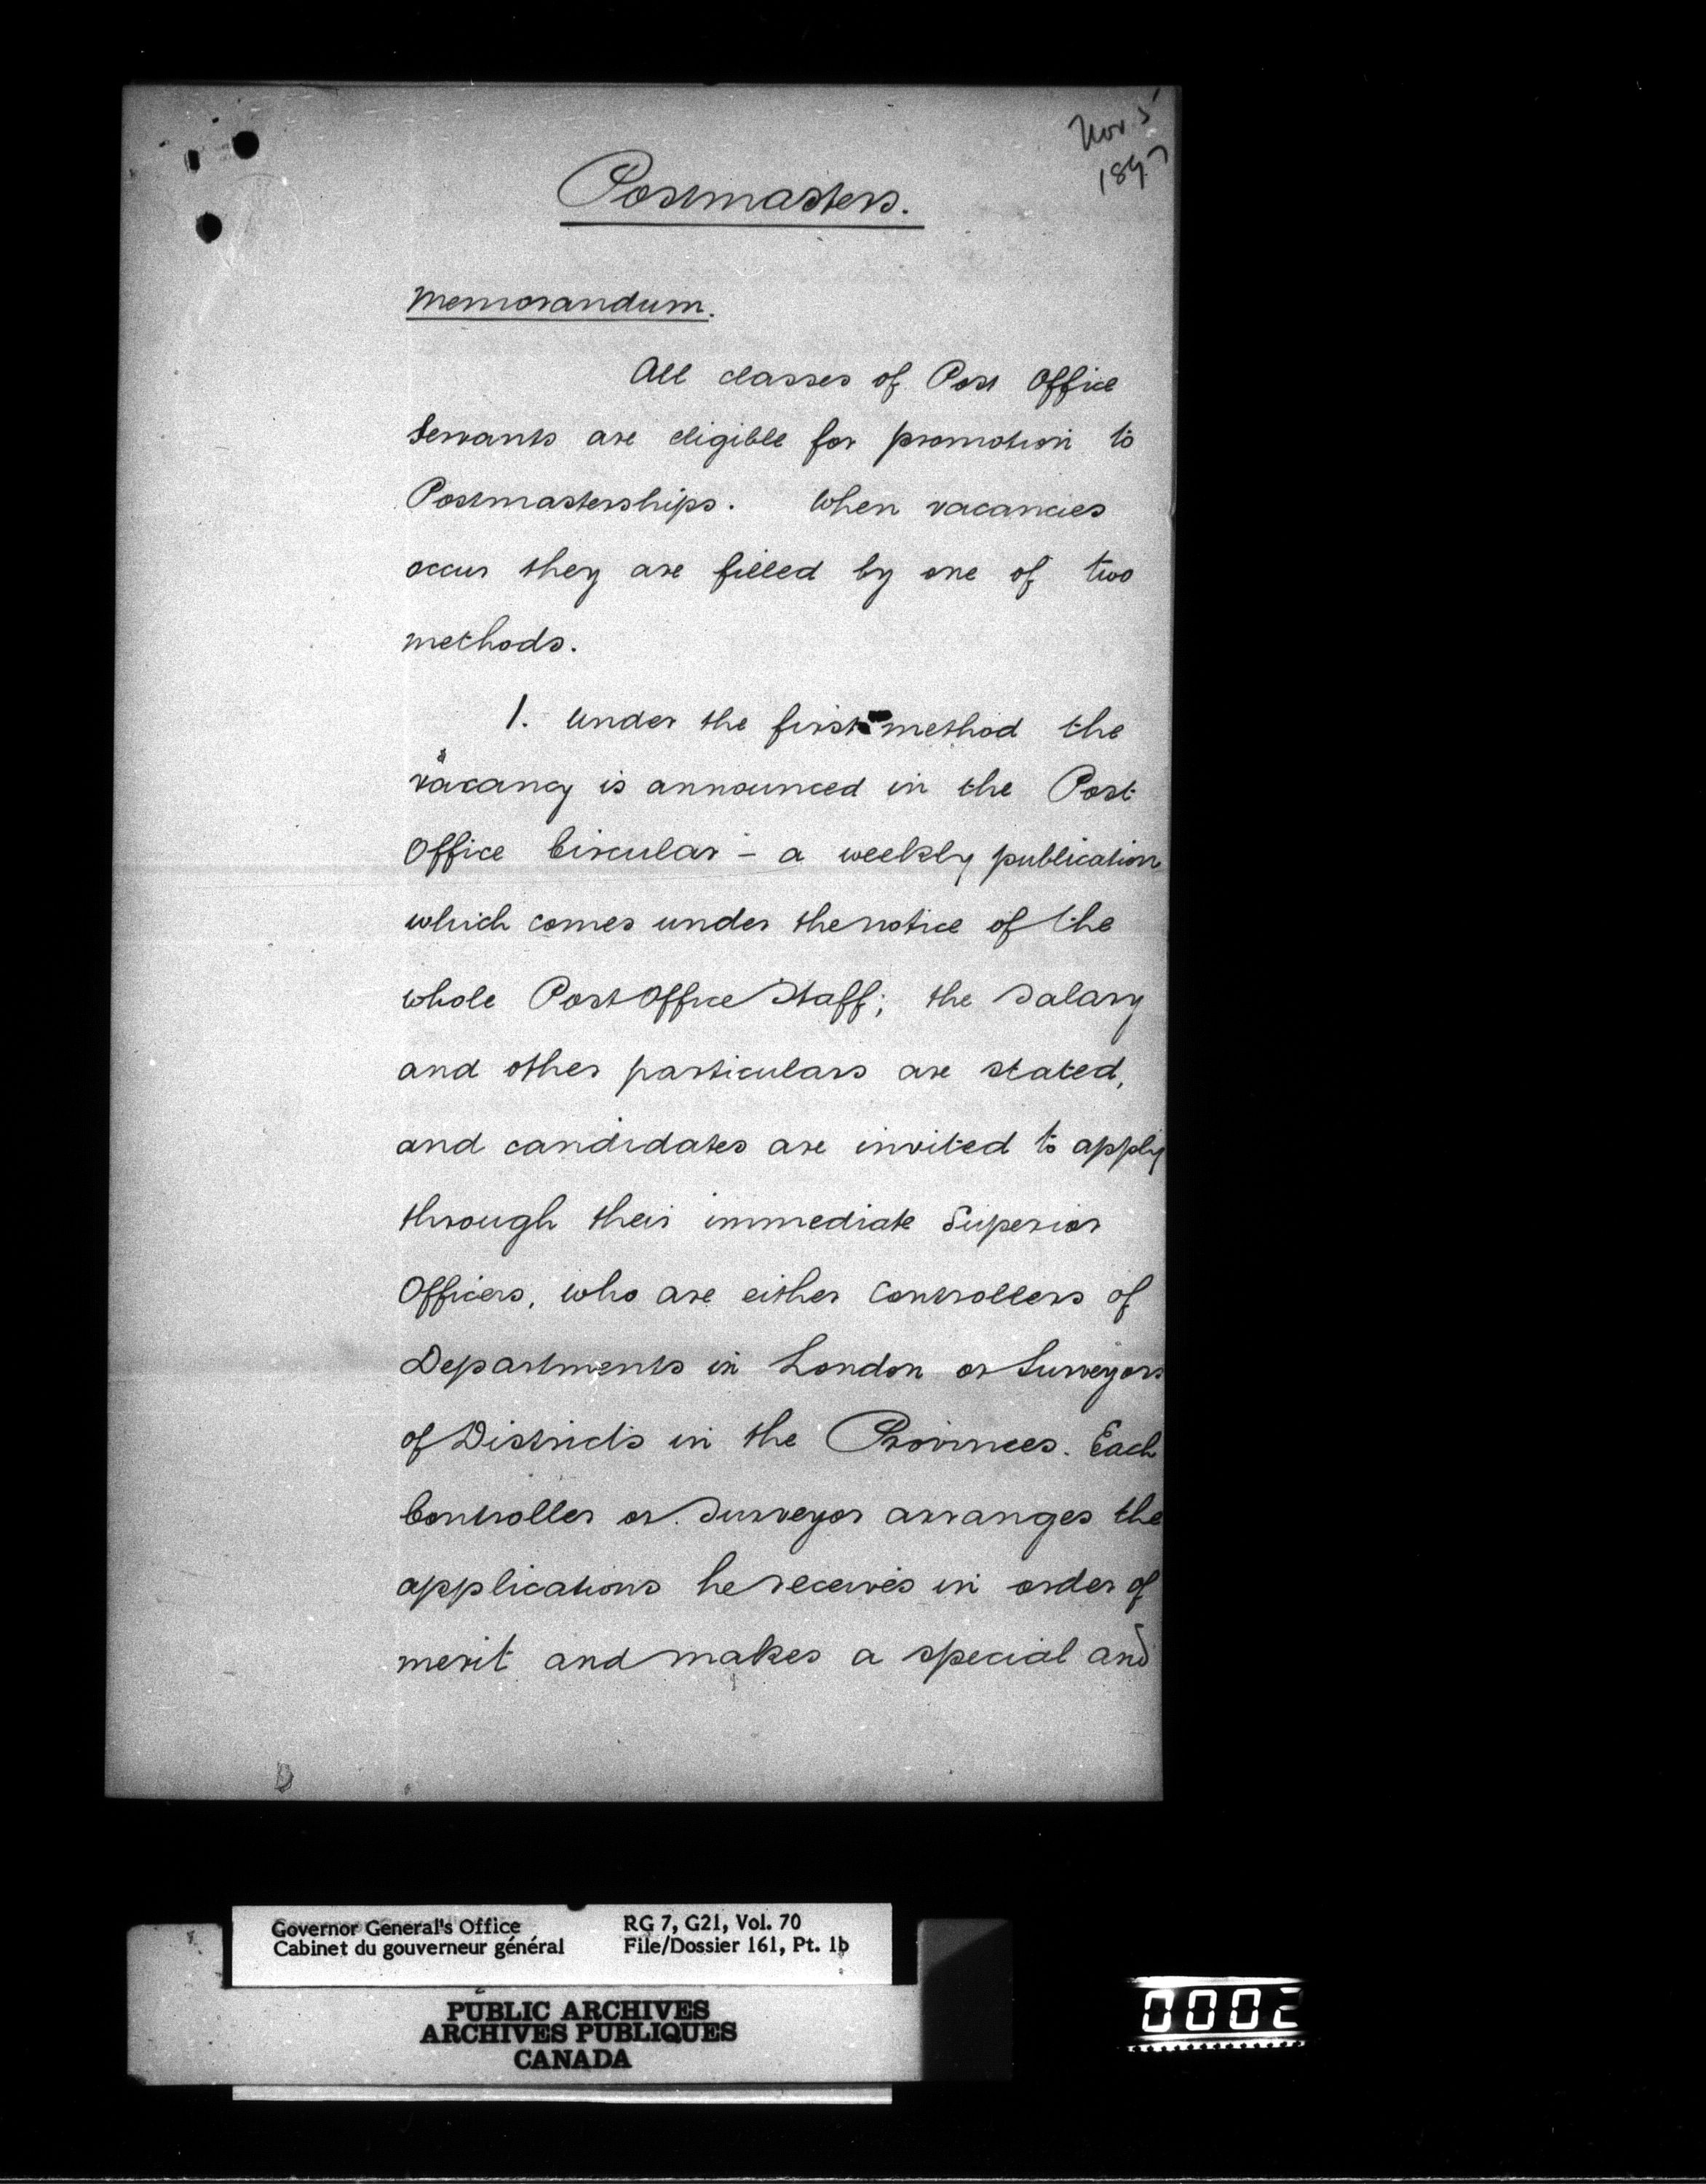 Nov 5
1897
Postmasters.
Memorandum.
All classes of Post Office
Servants are eligible for promotion to
Postmasterships. When vacancies
occur they are filled by one of two
methods.
1. Under the first method the
vacancy is announced in the Post
Office Circular - a weekly publication
which comes under the notice of the
whole Post Office Staff; the salary
and other particulars are stated,
and candidates are invited to apply
through their immediate Superior
Officers, who are either Controllers of
Departments in London or Surveyors
of Districts in the Provinces. Each
Controller or Surveyor arranges the
applications he receives in order of
merit and makes a special and
Governor General's Office
Cabinet du gouverneur général
RG 7, G21, Vol. 70
File/Dossier 161, Pt. 1b
PUBLIC ARCHIVES
ARCHIVES PUBLIQUES
CANADA
0002